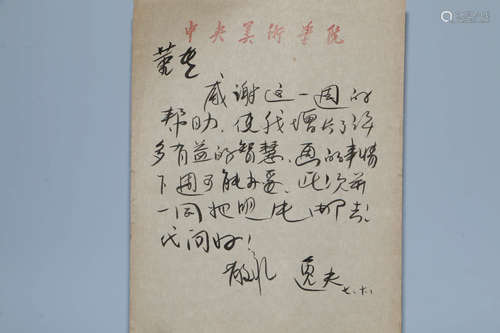 中央美術學院
感谢这一周的
帮助,使我增长了许
多有益的智慧,画的事情
下周可能办妥,此次并
一同把照片都
代问好!
敬礼 逸夫